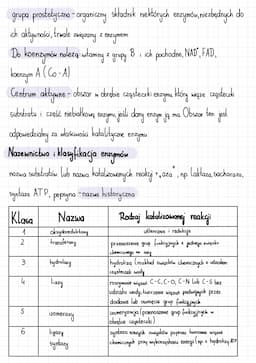 grupa prostetyczna - organiczny składnik niektórych enzymów, niezbędnych do
ich aktywności, trwale związany z enzymem
Do koenzymów należą: witaminy z grupy B i ich pochodne, NAD⁺, FAD,
koenzym A (Co-A)
Centrum aktywne - obszar w obrębie cząsteczki enzymu, który wiąże cząsteczki
substratu i część niebiałkową enzymu, jeśli dany enzym ją ma. Obszar ten jest
odpowiedzialny za właściwości katalityczne enzymu
Nazewnictwo i klasyfikacja enzymów
nazwa substratów lub nazwa katalizowanych reakcji + „aza”, np. laktaza, sacharaza,
syntaza ATP, pepsyna - nazwa historyczna
Klasa Nazwa Rodzaj katalizowanej reakcji
1 oksydoreduktazy utlenianie i redukcja
2 transferazy przenoszenie grup funkcyjnych z jednego związku
chemicznego na inny
3 hydrolazy hydroliza (rozkład związków chemicznych z udziałem
cząsteczki wody
4 liazy rozrywanie wiązań C-C, C-O, C-N lub C-S bez
udziału wody, tworzenie wiązań podwójnych przez
dodanie lub usunięcie grup funkcyjnych
5 izomerazy izomeryzacja (przenoszenie grup funkcyjnych w
obrębie cząsteczki)
6 ligazy synteza nowych związków poprzez tworzenie wiązań
syntetazy chemicznych przy wykorzystaniu energii (np. z hydrolizy ATP